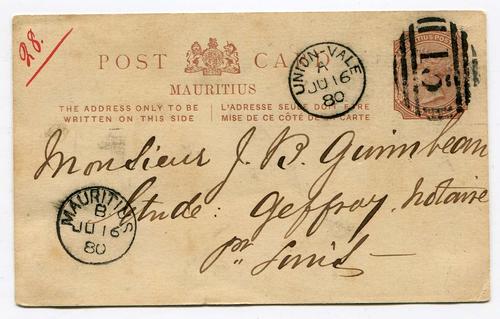 28.
POST CARD
MAURITIUS
THE ADDRESS ONLY TO BE
WRITTEN ON THIS SIDE
L'ADRESSE SEULE DOIT ETRE
MISE DE CE CÔTÉ DE LA CARTE
UNION-VALE
A
JU 16
80
Monsieur J. B. Guimbeau
Etude: Geffroy, Notaire
Pt Louis
MAURITIUS
B
JU 16
80